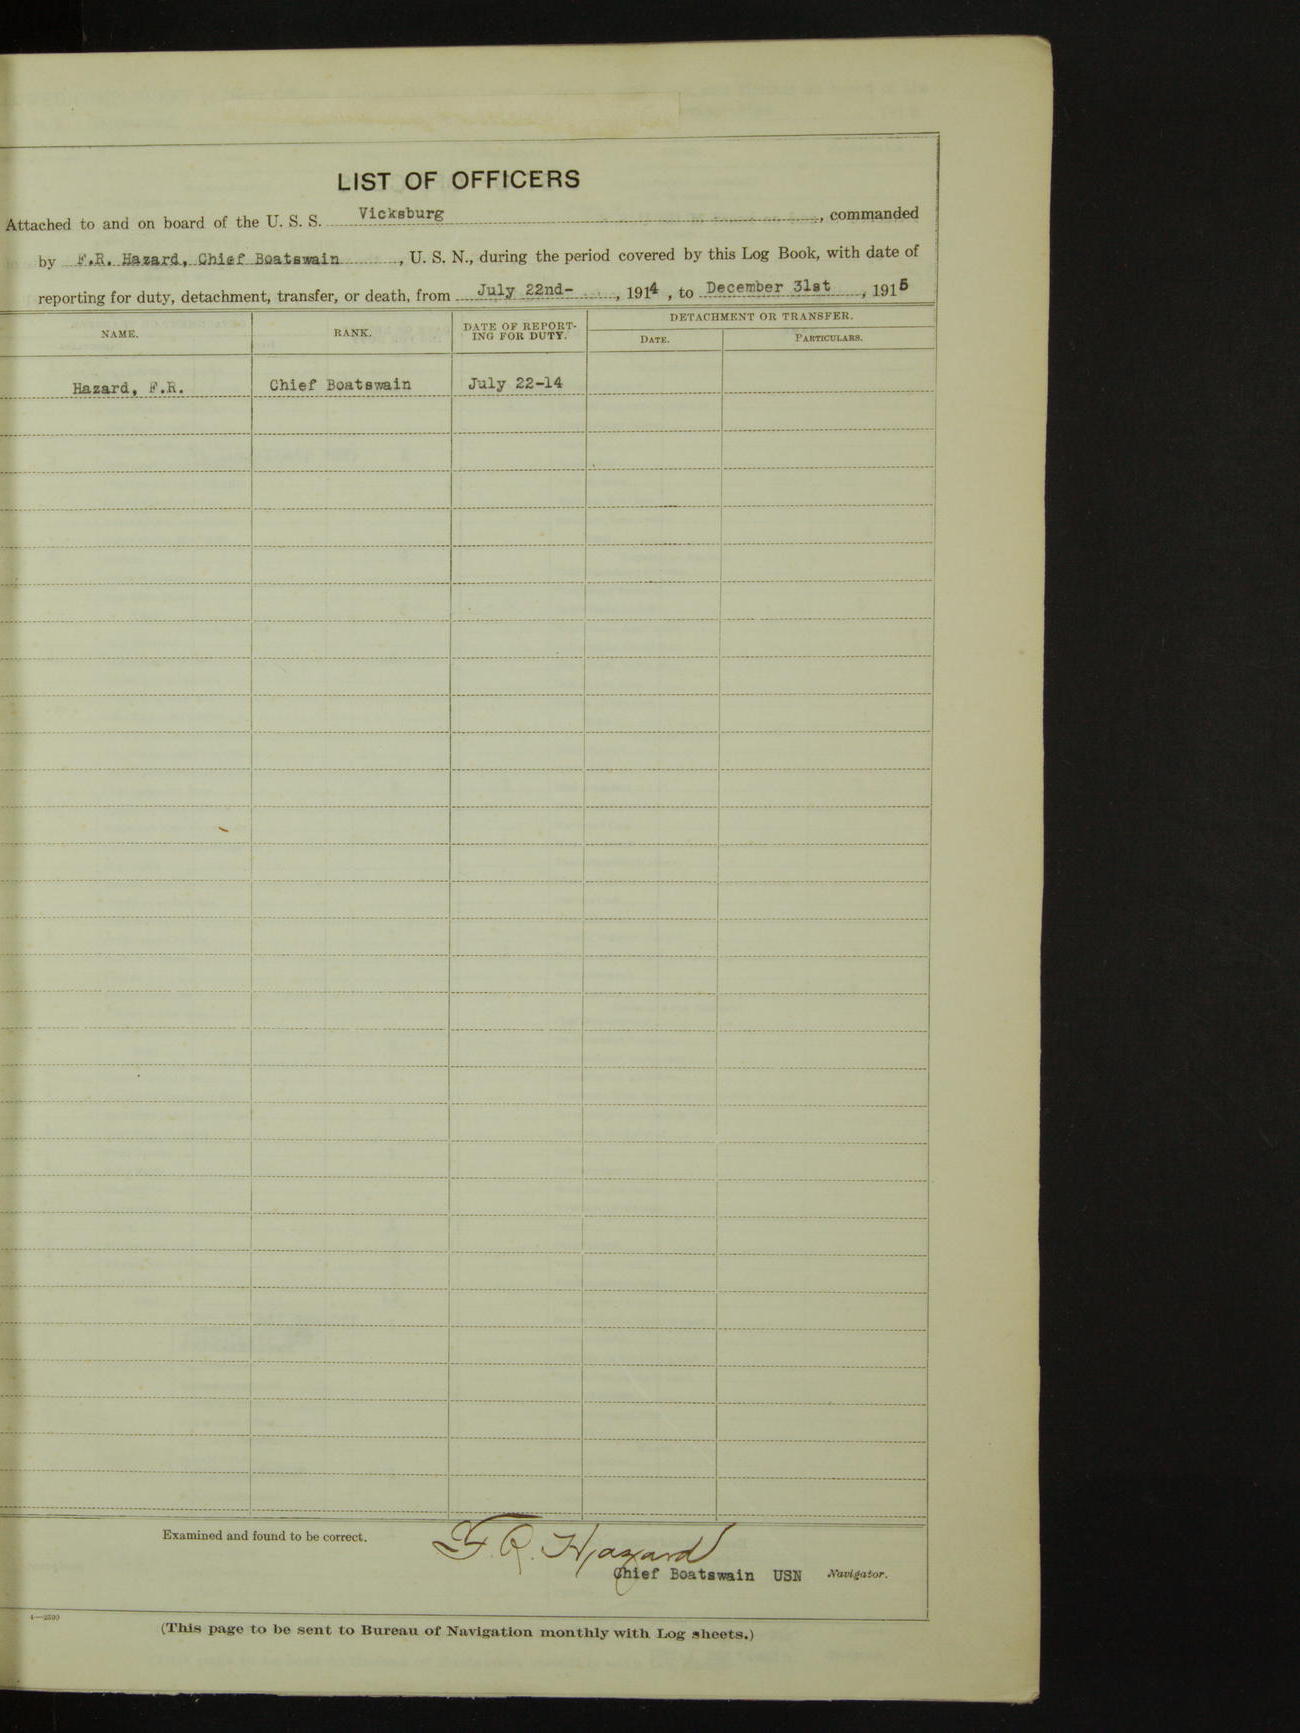 LIST OF OFFICERS
Attached to and on board of the U. S. S. Vicksburg, commanded
by F.R. Hazard, Chief Boatswain, U. S. N., during the period covered by this Log Book, with date of
reporting for duty, detachment, transfer, or death, from July 22nd-, 1914, to December 31st, 1915
NAME. RANK. DATE OF REPORT- DETACHMENT OR TRANSFER.
ING FOR DUTY. DATE. PARTICULARS.
Hazard, F.R. Chief Boatswain July 22-14
Examined and found to be correct. F. R. Hazard
Chief Boatswain USN Navigator.
(This page to be sent to Bureau of Navigation monthly with Log sheets.)